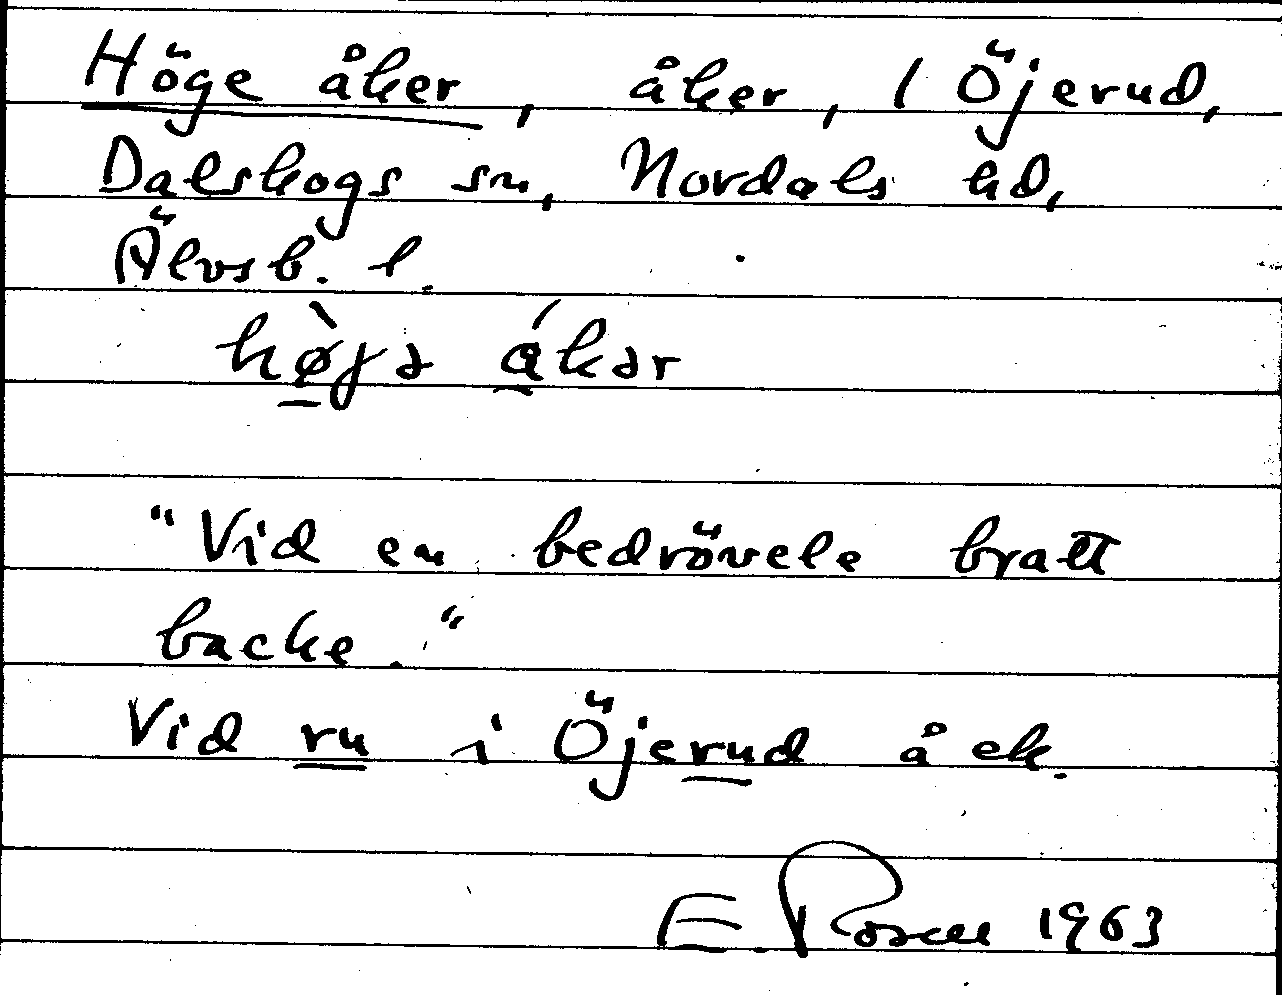 Höge åker, åker, 1 Öjerud,
Dalskogs sn, Nordals hd,
Älvsb. l.
hø̀gə ákər
"Vid en bedrövele bratt
backe."
Vid ru i Öjerud å ek.
E. Rosell 1963